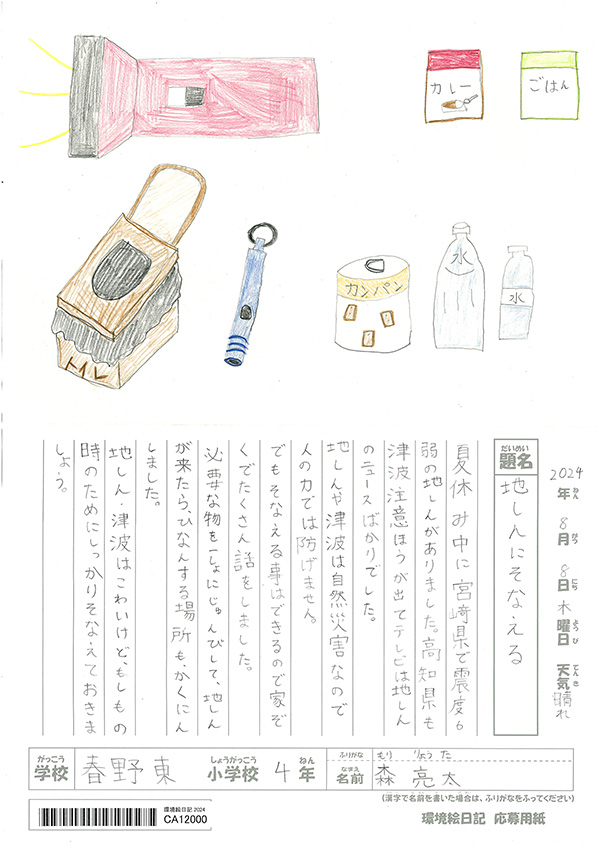 カレー
ごはん
トイレ
カンパン
水
水
2024年ねん 8月がつ 8日にち 木曜日ようび 天気てんき 晴れ
題名だいめい
地しんにそなえる
夏休み中に宮崎県で震度6
弱の地しんがありました。高知県も
津波注意ほうが出てテレビは地しん
のニュースばかりでした。
地しんや津波は自然災害なので
人の力では防げません。
でもそなえる事はできるので家ぞ
くでたくさん話をしました。
必要な物をいっしょにじゅんびして、地しん
が来たら、ひなんする場所も、かくにん
しました。
地しん・津波はこわいけど、もしもの
時のためにしっかりそなえておきま
しょう。
学校がっこう 春野東 小学校しょうがっこう 4年ねん
ふりがな もり りょうた
名前なまえ 森 亮太
(漢字で名前を書いた場合は、ふりがなをふってください)
環境絵日記 2024
CA12000
環境絵日記 応募用紙